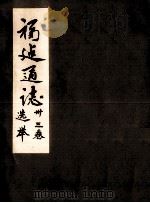 福建通志
卅三卷
选举